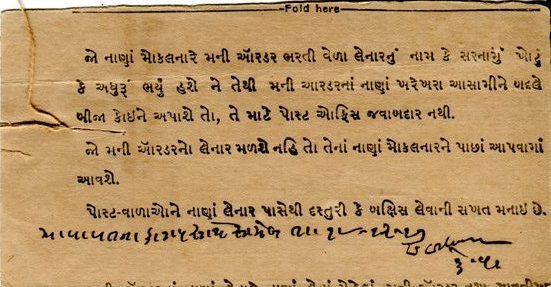 Fold here
જો નાણાં મોકલનારે મની ઑરડર ભરતી વેળા લેનારનું નામ કે સરનામું ખોટું
કે અધુરૂં ભર્યું હશે ને તેથી મની આરડરનાં નાણાં ખરેખરા આસામીને બદલે
બીજા કોઈને અપાશે તો, તે માટે પોસ્ટ ઑફિસ જવાબદાર નથી.
જો મની ઑરડરનો લેનાર મળશે નહિ તો તેનાં નાણાં મોકલનારને પાછાં આપવામાં
આવશે.
પોસ્ટ-વાળાઓને નાણાં લેનાર પાસેથી દસ્તુરી કે બક્ષિસ લેવાની સખત મનાઇ છે.